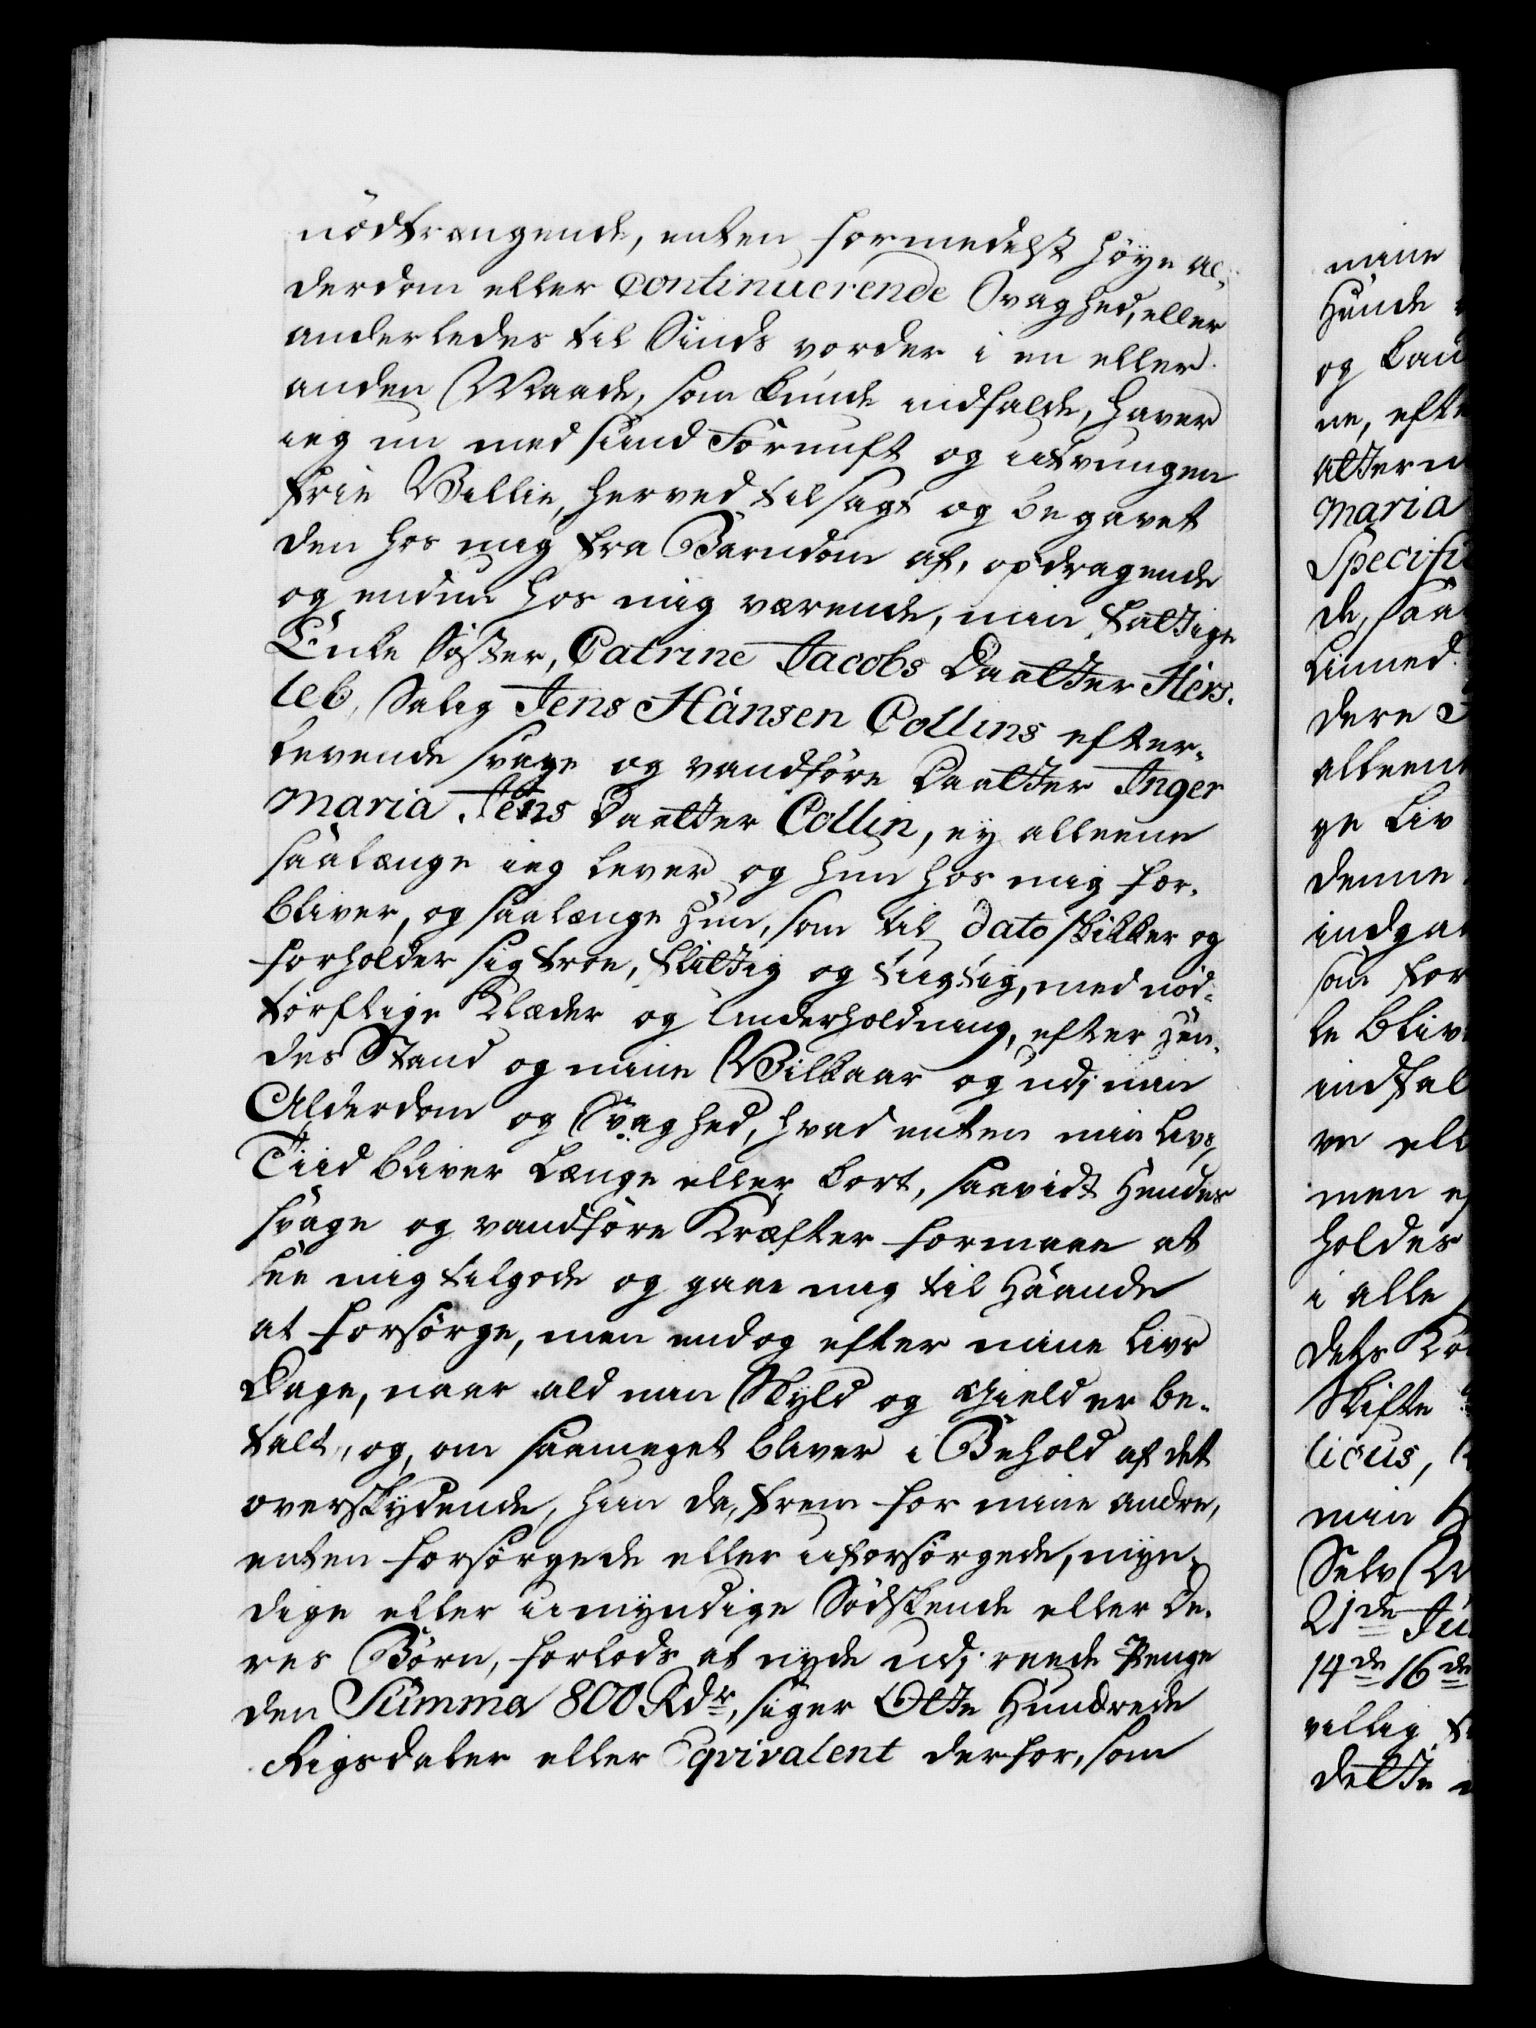 nödtrængende, enten formedelst höye al-
derdom eller continuerende Svaghed, eller
anderledes til Sinds vorder i en eller
anden Maade, som kunde indfalde, haver
ieg nu med sund Fornuft og utvungen
frie Villie, herved tilsagt og begavet
den hos mig fra Barndom af, opdragende
og endnu hos mig værende, min fattige
Enke Söster, Catrine Jacobs Daatter Hers-
leb, Salig Jens Hansen Collins efter-
levende svage og vandföre Daatter Inger
Maria Jens Daatter Collin, ey alleene
saalænge ieg lever og hun hos mig for-
bliver, og saalænge hun, som til dato skikker og
forholder sig troe, flittig og tugtig, med nöd-
törftige Klæder og Underholdning, efter hen-
des Stand og mine Vilkaar og udj min
Alderdom og Svaghed, hvad enten min Livs
Tiid bliver længe eller kort, saavidt hendes
svage og vandföre Kræfter formaae at
see mig tilgode og gaae mig til Haande
at forsörge, men endog efter mine Livs
Dage, naar ald min Skyld og Gield er be-
talt, og, om saameget bliver i Behold af det
overskydende, hun da, frem for mine andre,
enten forsörgede eller uforsörgede, myn-
dige eller umyndige Södskende eller De-
res Börn, forlods at nyde udj reede Penge
den Summa 800 Rdr, siger Otte Hundrede
Rigsdaler eller Eqvivalent derfor, som
mine
Hunde
og
ne, efte
Maria
Specifi
de, saa
dere
alleen
ge Liv
denne
indga
som for
le bliv
indfal
men
holdes
i alle
dets
Skifte
licus,
min
Selv
21de Ju
14de 16de
villig
dette